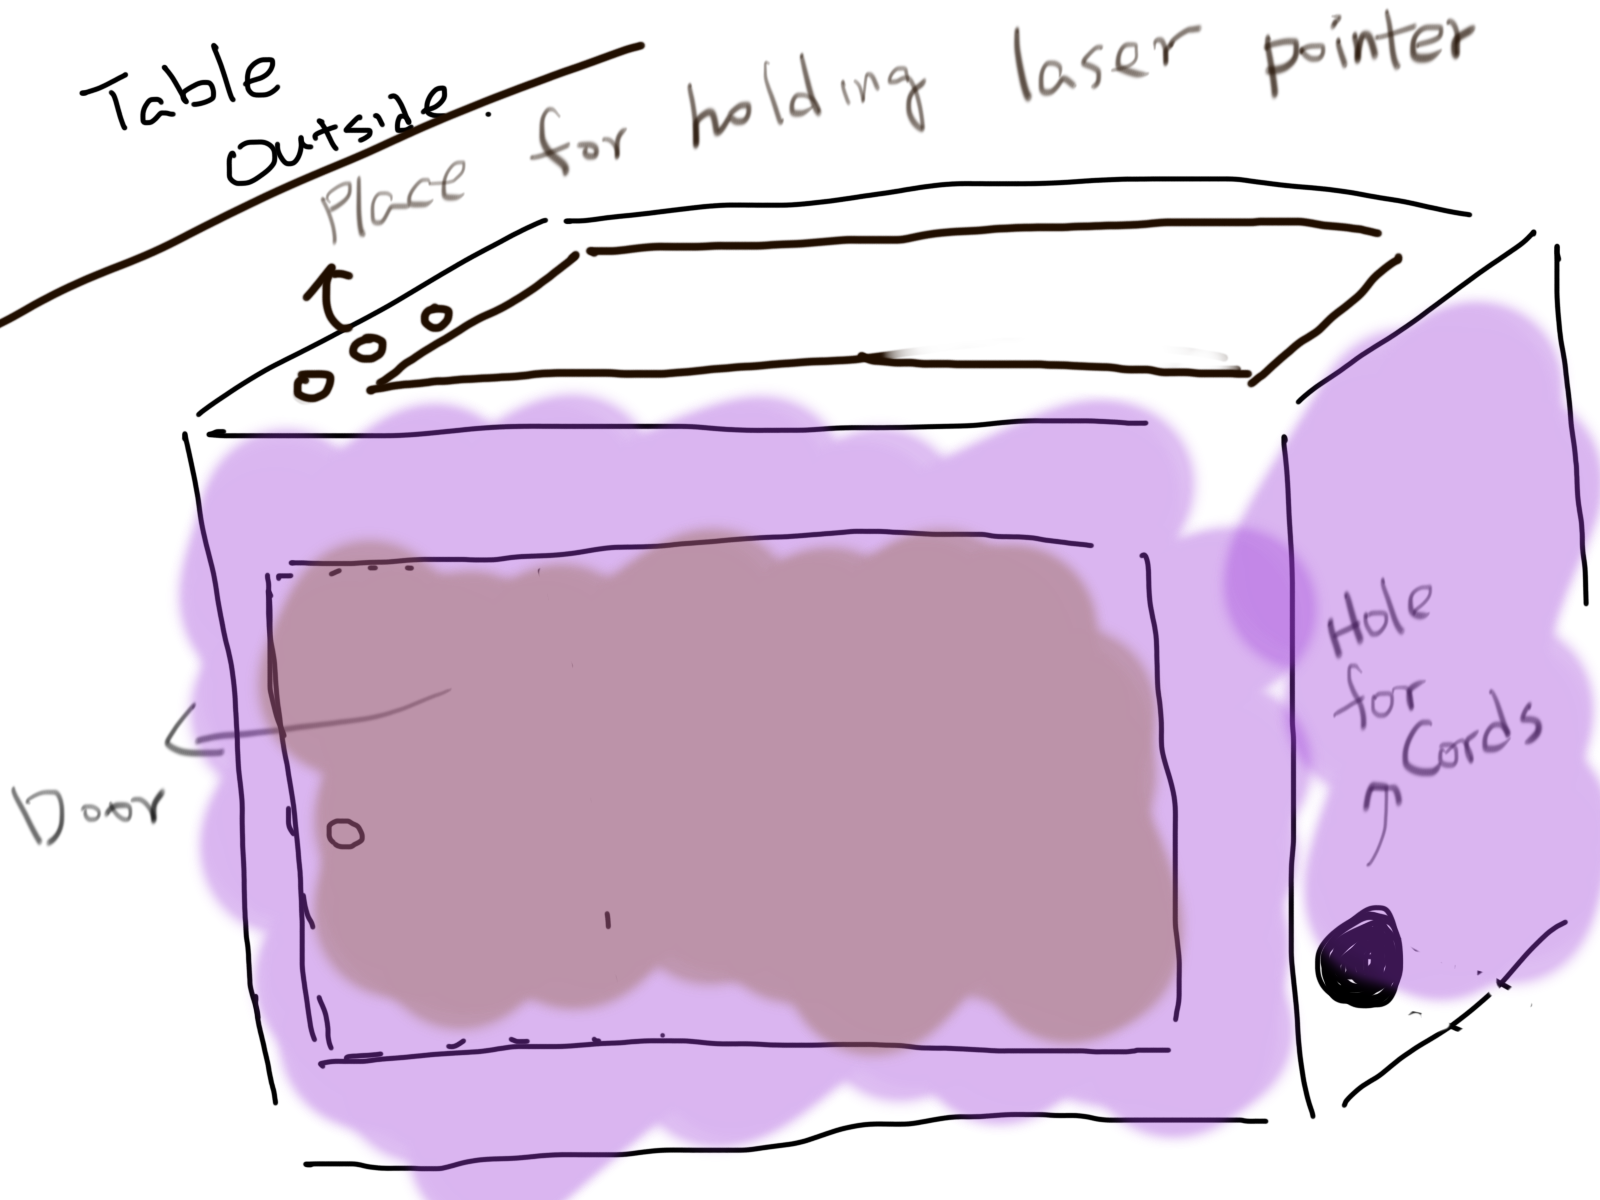 Table
Outside.
Place for holding laser pointer
Hole
for
Cords
Door